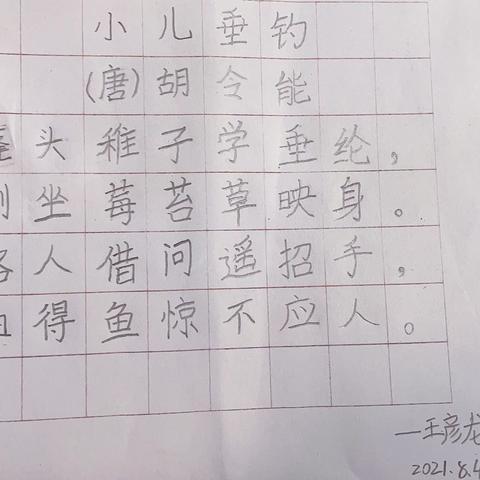 小儿垂钓
(唐)胡令能
蓬头稚子学垂纶,
侧坐莓苔草映身。
路人借问遥招手,
怕得鱼惊不应人。
—王彦龙
2021.8.4